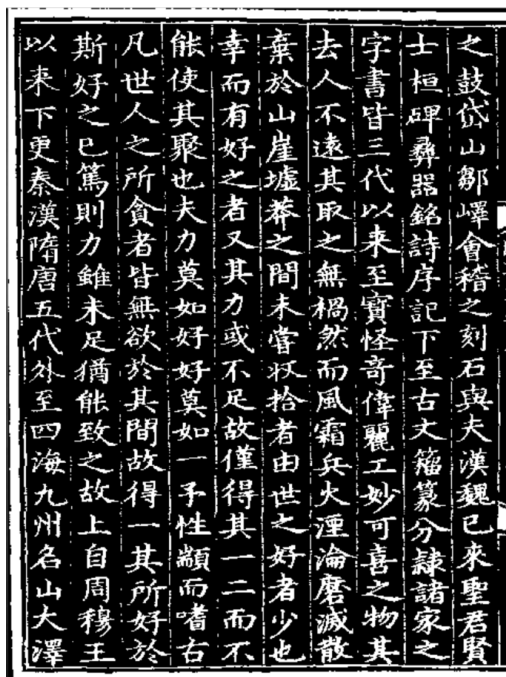 之鼓岱山鄒嶧會稽之刻石與夫漢魏已來聖君賢
士桓碑彝器銘詩序記下至古文籀篆分隸諸家之
字書皆三代以来至寶怪奇偉麗工妙可喜之物其
去人不遠其取之無禍然而風霜兵火湮淪磨滅散
棄於山崖墟莽之間未嘗收拾者由世之好者少也
幸而有好之者又其力或不足故僅得其一二而不
能使其聚也夫力莫如好好莫如一予性顓而嗜古
凡世人之所貪者皆無欲於其間故得一其所好於
斯好之已篤則力雖未足猶能致之故上自周穆王
以来下更秦漢隋唐五代外至四海九州名山大澤